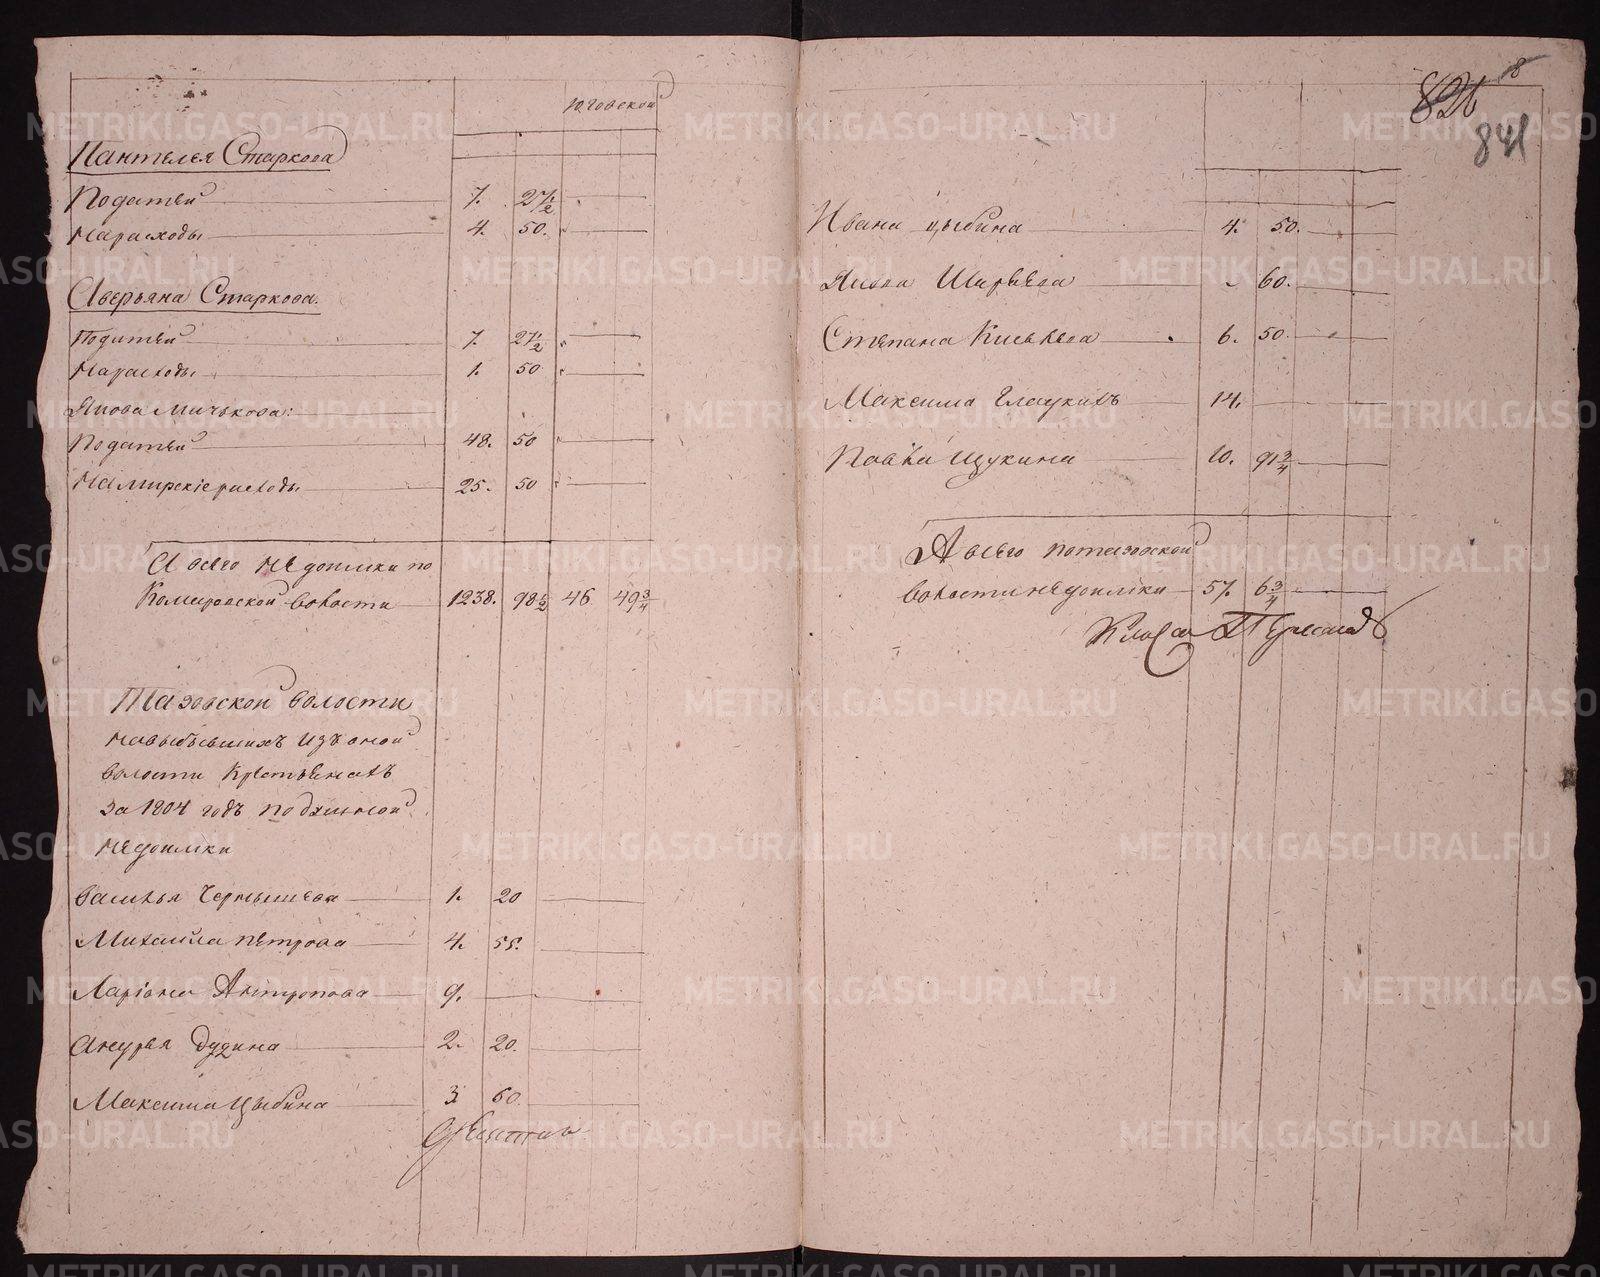 Юговской
Пантелея Старкова
Податей 7. 27 1/2
На расходы 4. 50.
Аверьяна Старкова.
Податей 7. 27 1/2
На расходы 1. 50
Якова Мичькова:
Податей 48. 50
На мирскіе расходы 25. 50
А всего недоимки по
Комаровской волости 1238. 98 1/2 46 49 3/4
Тазовской волости
на выбывшихъ изъ оной
волости крестьянахъ
за 1804 годъ подушной
недоимки
Василья Чернышева 1. 20
Михаила Петрова 4. 55.
Ларіона Антропова 9.
Дудина 2. 20.
Максима Цыбина 3 60
826
841
Ивана Цыбина 4. 50.
Якова Ширяева 60.
Степана Киселева 6. 50
Максима Глаткихъ 14.
Павла Щукина 10. 91 3/4
А всего по Тазовской
волости недоимки 57. 6 3/4
METRIKI.GASO-URAL.RU